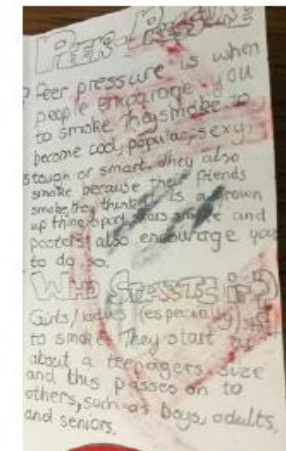 PEER-PRESSURE
Peer pressure is when
people encourage you
to smoke. They smoke to
become cool, popular, sexy,
tough or smart. They also
smoke because their friends
smoke, they think it is a grown
up thing, sport stars smoke and
posters also encourage you
to do so.
WHO STARTS IT?
Girls/ladies (especially) start
to smoke. They start
about a teenagers size
and this passes on to
others, such as boys, adults,
and seniors.